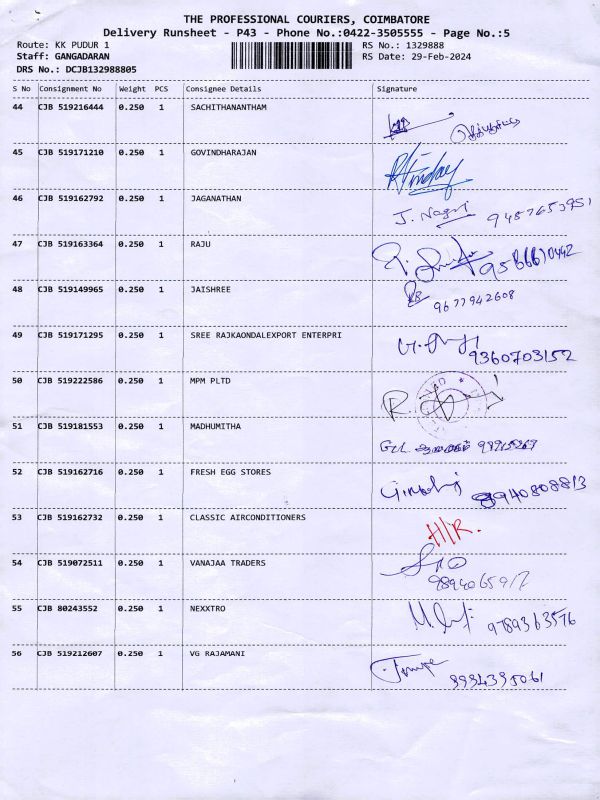 THE PROFESSIONAL COURIERS, COIMBATORE
Delivery Runsheet - P43 - Phone No.:0422-3505555 - Page No.:5
Route: KK PUDUR 1 RS No.: 1329888
Staff: GANGADARAN RS Date: 29-Feb-2024
DRS No.: DCJB132988805
S No Consignment No Weight PCS Consignee Details Signature
44 CJB 519216444 0.250 1 SACHITHANANTHAM
45 CJB 519171210 0.250 1 GOVINDHARAJAN
46 CJB 519162792 0.250 1 JAGANATHAN
47 CJB 519163364 0.250 1 RAJU
48 CJB 519149965 0.250 1 JAISHREE
9677942608
49 CJB 519171295 0.250 1 SREE RAJKAONDALEXPORT ENTERPRI
9360703152
50 CJB 519222586 0.250 1 MPM PLTD
51 CJB 519181553 0.250 1 MADHUMITHA
52 CJB 519162716 0.250 1 FRESH EGG STORES
53 CJB 519162732 0.250 1 CLASSIC AIRCONDITIONERS
H/R.
54 CJB 519072511 0.250 1 VANAJAA TRADERS
55 CJB 80243552 0.250 1 NEXXTRO
9789363576
56 CJB 519212607 0.250 1 VG RAJAMANI